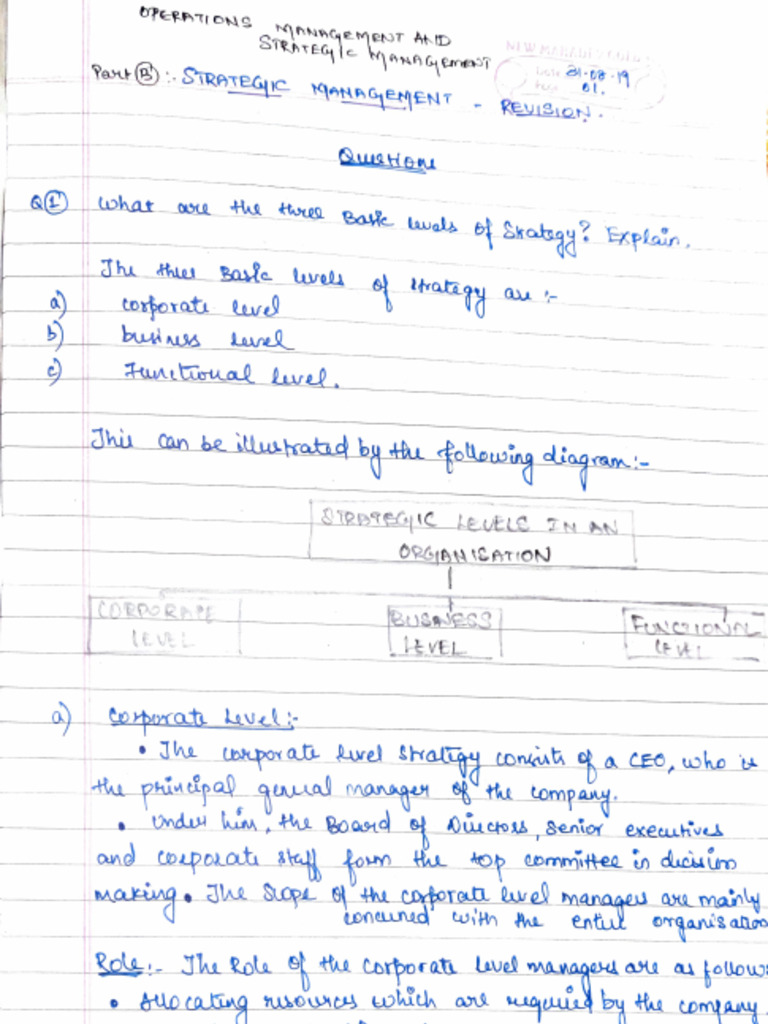 OPERATIONS MANAGEMENT AND
STRATEGIC MANAGEMENT
Date 31-08-19
Page 01.
Part (B) :- STRATEGIC MANAGEMENT - REVISION.
Questions
Q(1) What are the three Basic levels of Strategy? Explain.
The three Basic levels of strategy are :-
a) corporate level
b) business level
c) Functional level.
This can be illustrated by the following diagram:-
STRATEGIC LEVELS IN AN
ORGANISATION
CORPORATE LEVEL
BUSINESS LEVEL
FUNCTIONAL LEVEL
a) Corporate Level:-
• The corporate level strategy consists of a CEO, who is
the principal general manager of the company.
• Under him, the Board of Directors, senior executives
and corporate staff form the top committee in decision
making. The Scope of the corporate level managers are mainly
concerned with the entire organisation
Role:- The Role of the corporate level managers are as follow:
• Allocating resources which are required by the company